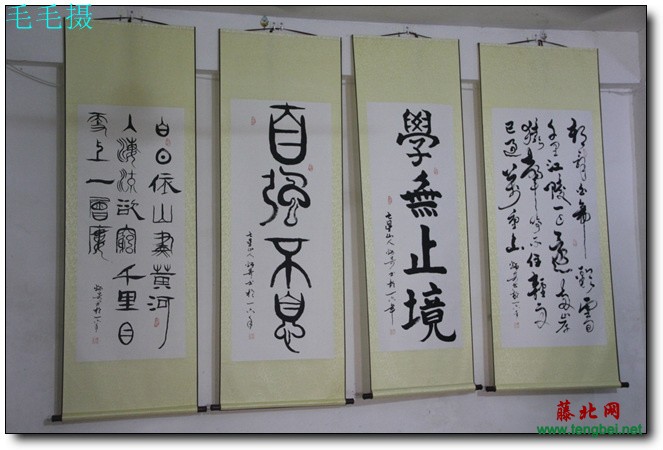 毛毛摄
朝辞白帝彩雲間
千里江陵一日還两岸
猿聲啼不住輕舟
已過萬重山
學無止境
自強不息
白日依山盡黃河
入海流欲窮千里目
更上一層樓
藤北网
www.tengbei.net